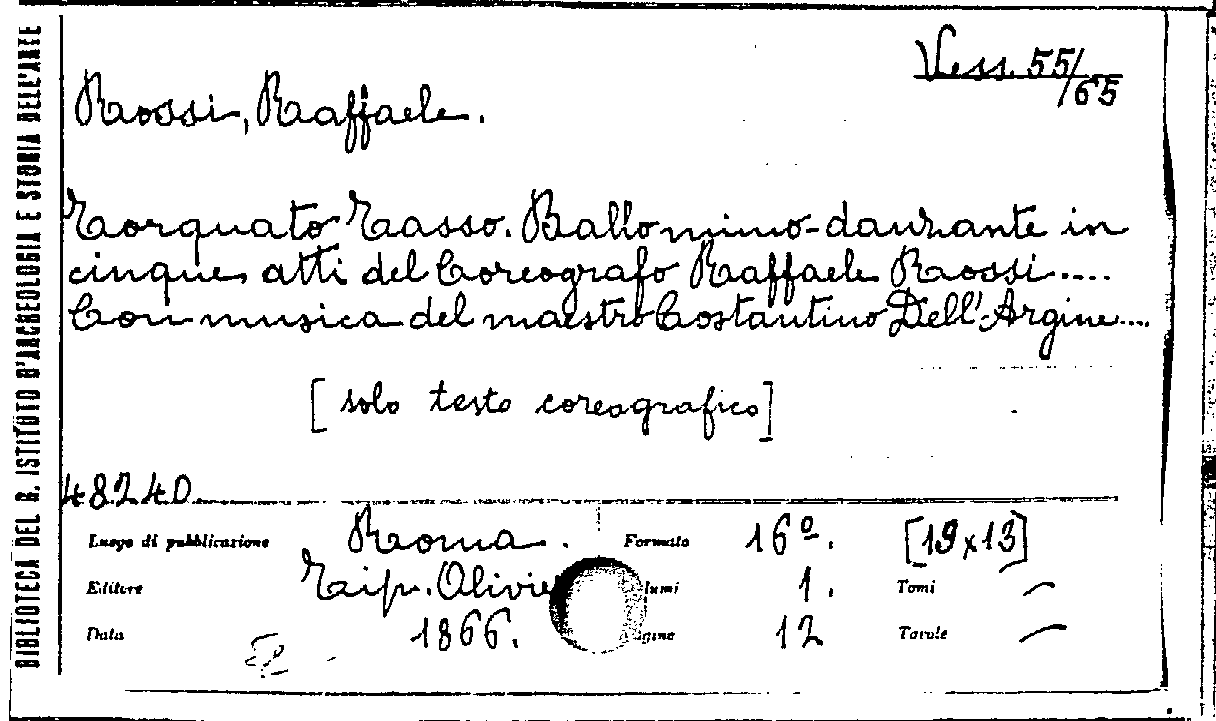 BIBLIOTECA DEL R. ISTITUTO D'ARCHEOLOGIA E STORIA DELL'ARTE
Vess. 55/65
Rossi, Raffaele.
Torquato Tasso. Ballo mimo-danzante in
cinque atti del Coreografo Raffaele Rossi....
Con musica del maestro Costantino Dell'Argine....
[solo testo coreografico]
48240
Luogo di pubblicazione Roma. Formato 16º. [19x13]
Editore Tip. Olivie lumi 1. Tomi —
Data 1866. gine 12 Tavole —